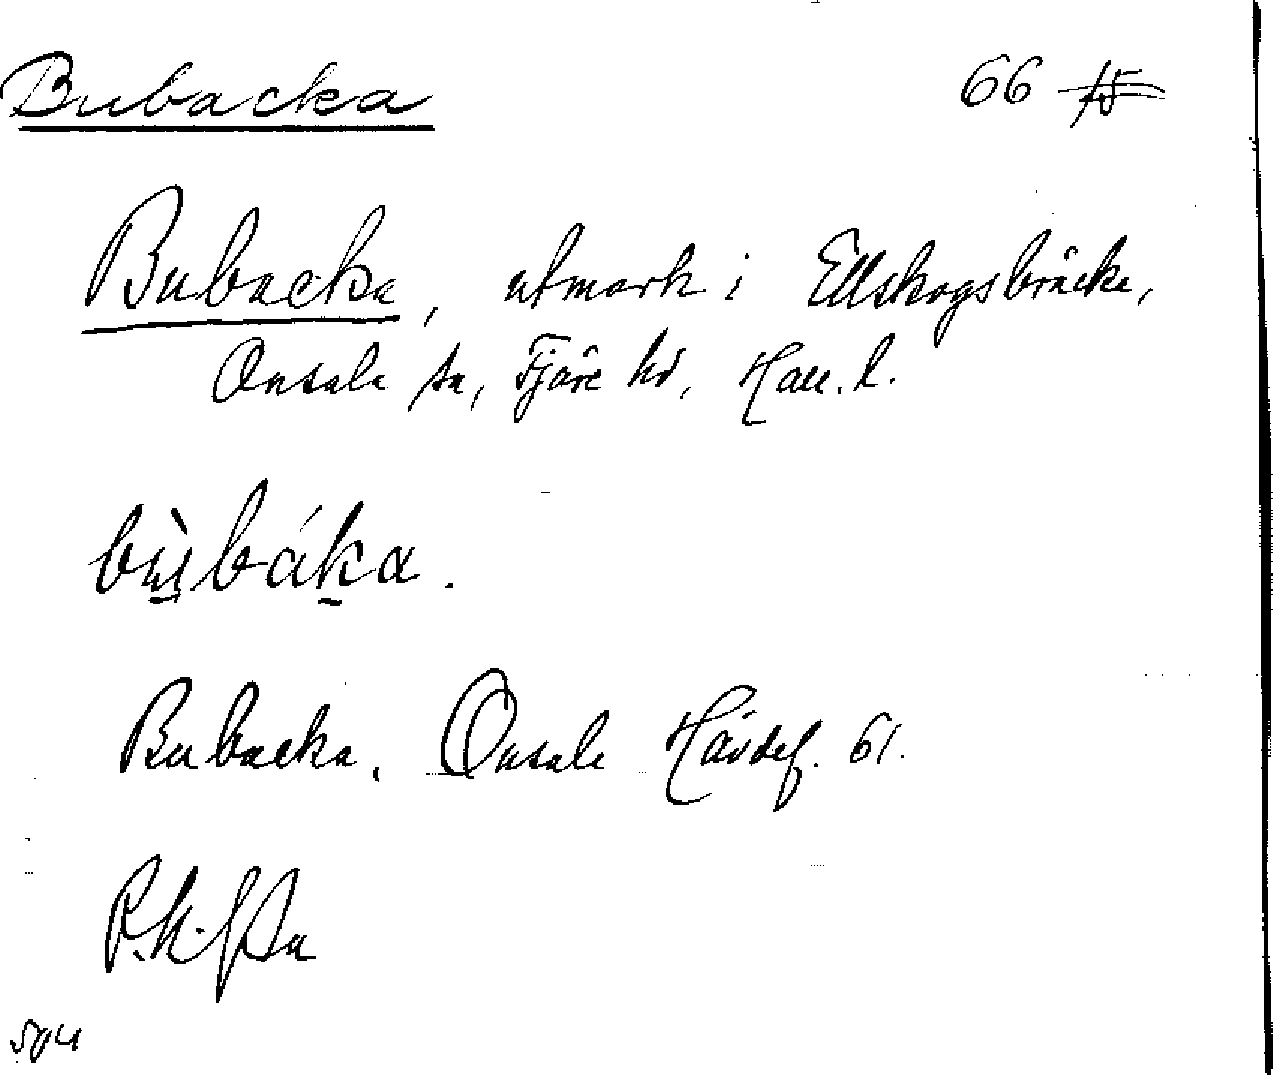 Bubacka 66
Bubacka, utmark i Ellskogsbräcka,
Onsala sn, Fjäre hd, Hall. l.
bù̱báḵa.
Bubacka. Onsala Hävdef. 61.